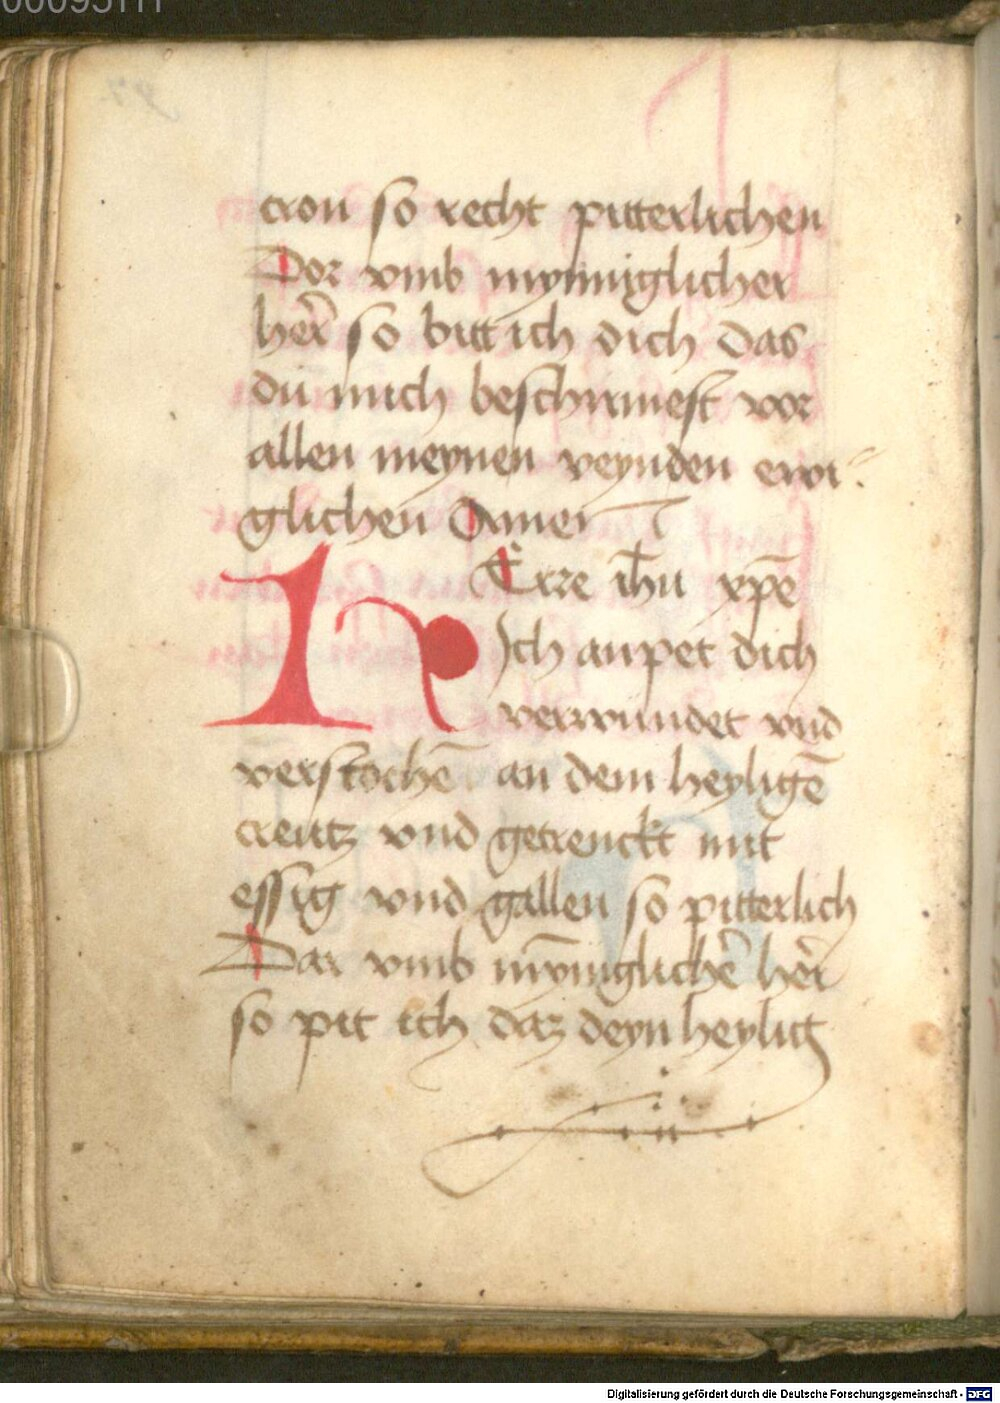 cron so recht pitterlichen
Dor vmb mynniglicher
her̄ so bitt ich dich das
du mich beschirmest vor
allen meynen veynden ewi
glichen Amen
HErre ih̄u xp̄e
Ich anpet dich
verwundet vnd
verstochē an dem heyligē
creutz vnd getrenckt mit
essig vnd gallen so pitterlich
Dar vmb mȳniglichē her̄
so pit ich daz deyn heylig
Digitalisierung gefördert durch die Deutsche Forschungsgemeinschaft - DFG